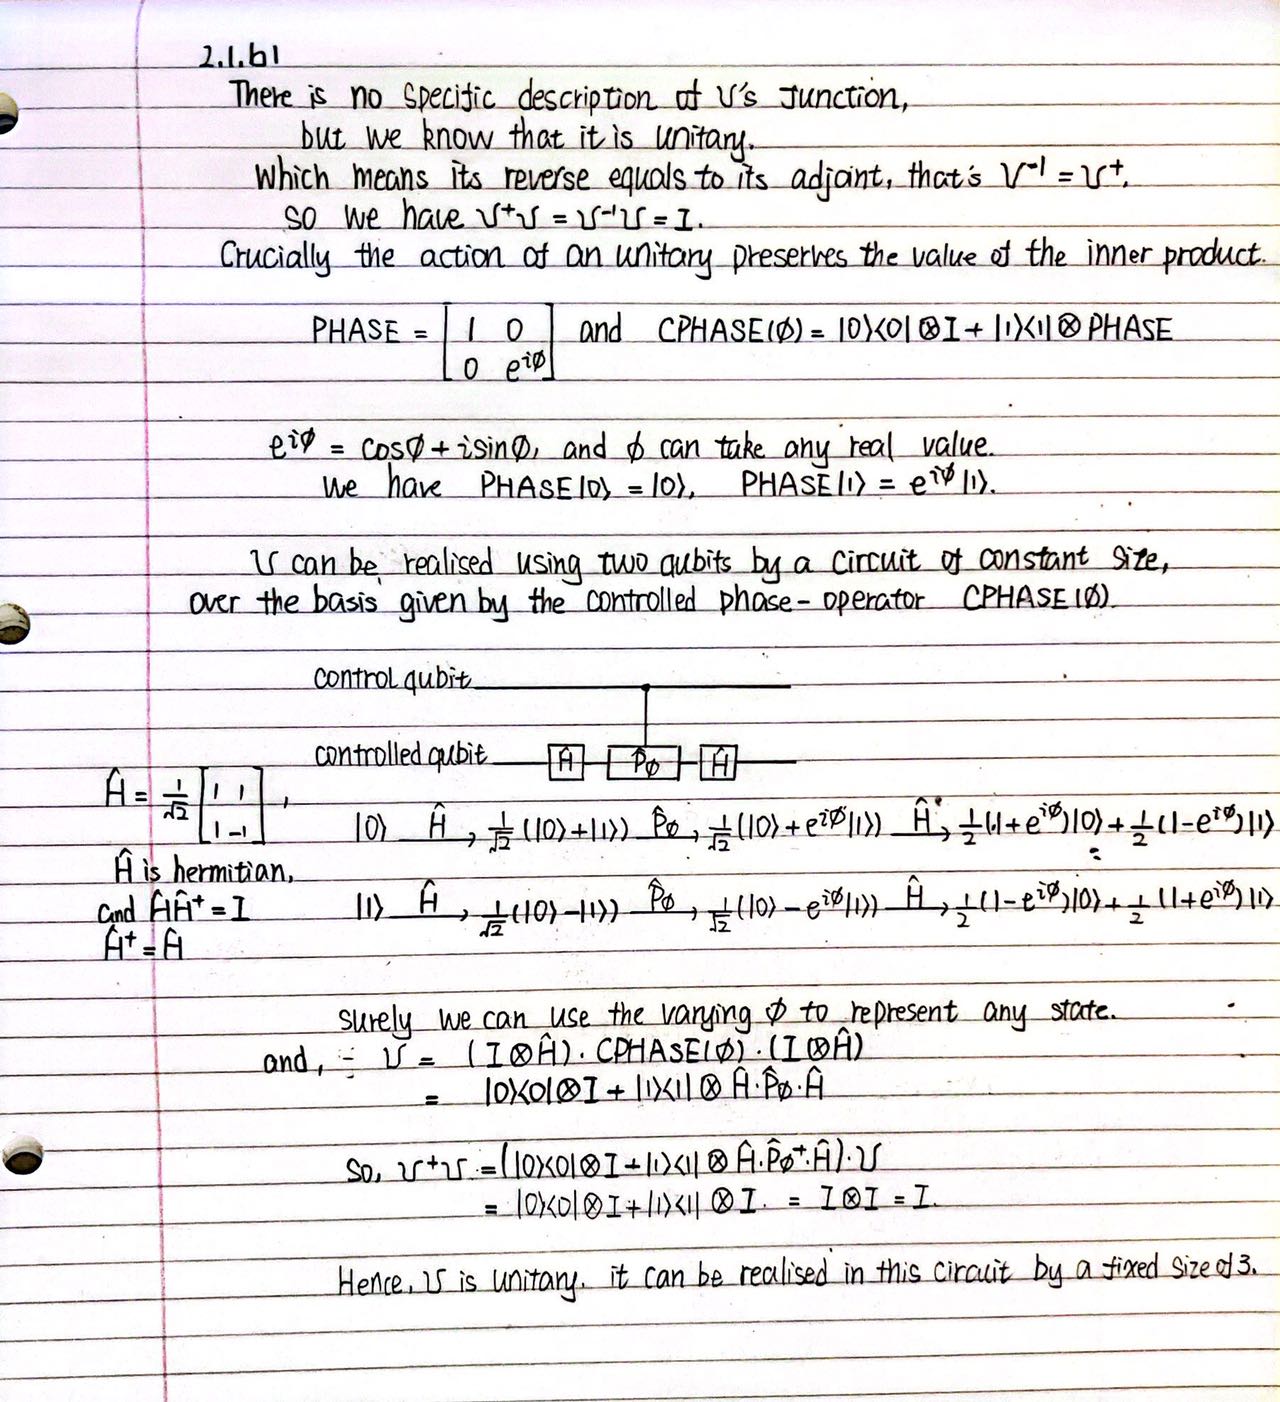 2.1.b1
There is no specific description of U's function,
but we know that it is unitary.
Which means its reverse equals to its adjoint, that's U⁻¹ = U⁺.
so we have U⁺U = U⁻¹U = I.
Crucially the action of an unitary preserves the value of the inner product.
PHASE = [1 0
0 e^{iφ}] and CPHASE(φ) = |0⟩⟨0| ⊗ I + |1⟩⟨1| ⊗ PHASE
e^{iφ} = cosφ + isinφ, and φ can take any real value.
We have PHASE|0⟩ = |0⟩, PHASE|1⟩ = e^{iφ}|1⟩.
U can be realised using two qubits by a circuit of constant size,
over the basis given by the controlled phase-operator CPHASE(φ).
control qubit
controlled qubit Ĥ P̂φ Ĥ
Ĥ = 1/√2 [1 1
1 -1],
|0⟩ Ĥ, 1/√2(|0⟩+|1⟩) P̂φ, 1/√2(|0⟩+e^{iφ}|1⟩) Ĥ, 1/2(1+e^{iφ})|0⟩+1/2(1-e^{iφ})|1⟩
Ĥ is hermitian,
and ĤĤ⁺ = I
Ĥ⁺ = Ĥ
|1⟩ Ĥ, 1/√2(|0⟩-|1⟩) P̂φ, 1/√2(|0⟩-e^{iφ}|1⟩) Ĥ, 1/2(1-e^{iφ})|0⟩+1/2(1+e^{iφ})|1⟩
surely we can use the varying φ to represent any state.
and, U = (I⊗Ĥ)·CPHASE(φ)·(I⊗Ĥ)
= |0⟩⟨0|⊗I + |1⟩⟨1|⊗Ĥ·P̂φ·Ĥ
So, U⁺U = (|0⟩⟨0|⊗I + |1⟩⟨1|⊗Ĥ·P̂φ⁺·Ĥ)·U
= |0⟩⟨0|⊗I + |1⟩⟨1|⊗I. = I⊗I = I.
Hence, U is unitary. it can be realised in this circuit by a fixed size of 3.